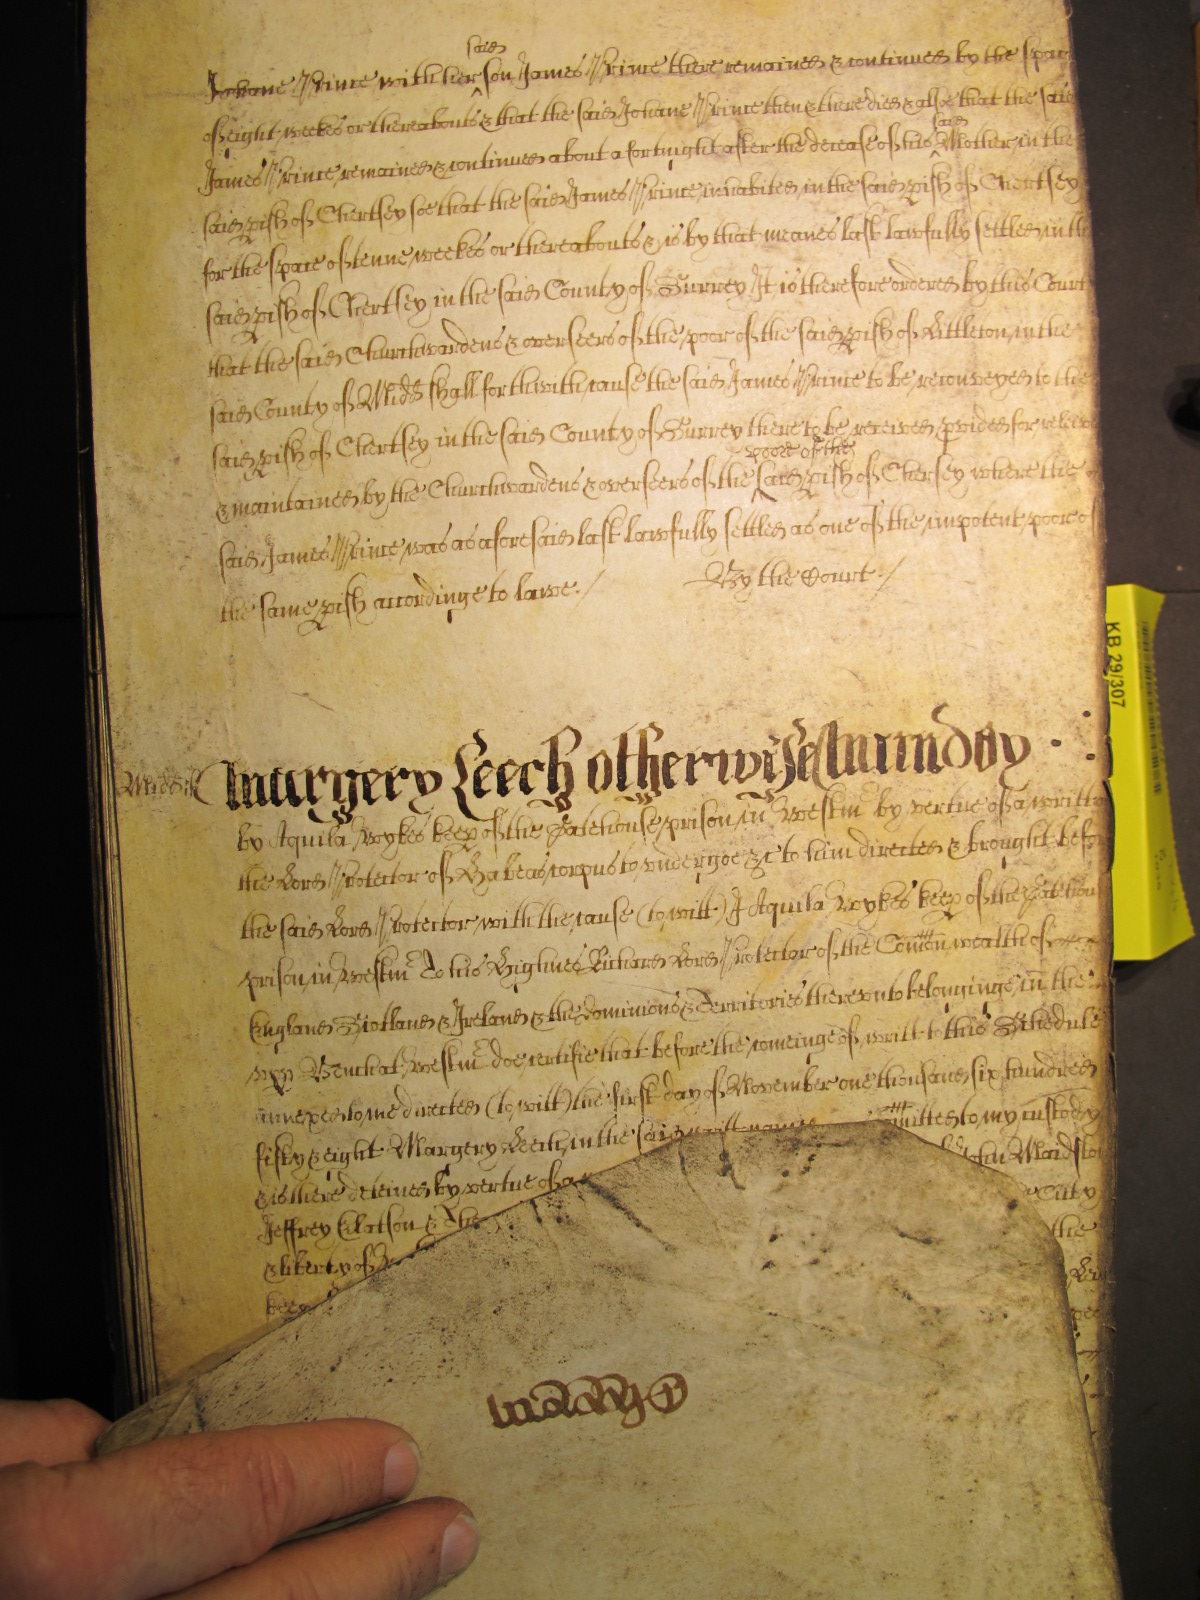 said
Johane Prince with her son James Prince there remained & continued by the space
of eight weekes or thereabouts & that the said Johane Prince then & there died & alsoe that the said
said
James Prince remained & continued about a fortnight after the decease of his Mother in the
said pish of Chertsey soe that the said James Prince inhabited in the said pish of Chertsey
for the space of tenne weekes or thereabouts & is by that meanes last lawfully settled in the
said pish of Chertsey in the said County of Surrey It is therefore ordered by this Court
that the said Churchwardens & overseers of the poor of the said pish of Littleton in the
said County of Midds shall forthwith cause the said James Prince to be reconveyed to the
said pish of Chertsey in the said County of Surrey there to be received pvided for releived
poore of the
& maintained by the Churchwardens & overseers of the said pish of Chersey where the
said James Prince was as aforesaid last lawfully settled as one of the impotent poor of
the same pish accordinge to lawe./ By the Court./
Midds Margery Leech otherwise Munday
by Aquila Wykes keep of the Gatehouse prison in Westm by vertue of a writt of
the Lord Protector of Habeas corpus to undergoe &c to him directed & brought before
the said Lord Protector with the cause (to witt) I Aquila Wykes keep of the Gatehouse
prison in Westm To his Highnes Richard Lord Protector of the Comon wealth of
England Scotland & Ireland & the Dominions & Territories thereunto belonginge in the
upp Bench at Westm doe certifie that before the comeinge of writt to this Schedule
annexed to me directed (to witt) the first day of November one thousand six hundred
fifty & eight Margery Leech in the said writt named mitted to my custody
& is there deteined by vertue of a John Maidston
Jeffrey Elatson & The Citty
& liberty of the
keep
KB 29/307